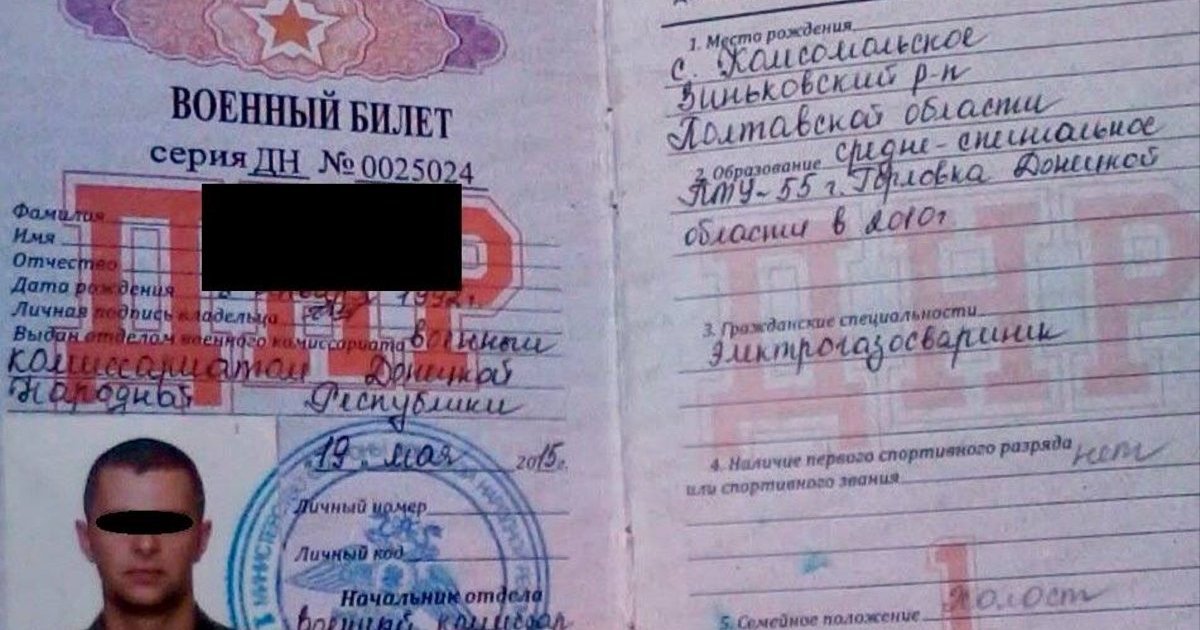 ВОЕННЫЙ БИЛЕТ
серия ДН № 0025024
ДНР
Фамилия
Имя
Отчество
Дата рождения 1992г.
Личная подпись владельца
Выдан отделом военного комиссариата военным
комиссариатом Донецкой
Народной Республики
19 мая 2015г.
Личный номер
Личный код
Начальник отдела
военный комиссар
1. Место рождения
с. Комсомольское
Зиньковский р-н
Полтавской области
2. Образование средне-специальное
ПТУ-55 г. Горловка Донецкой
области в 2010г
ДНР
3. Гражданские специальности
Электрогазосварщик
4. Наличие первого спортивного разряда нет
или спортивного звания
1
5. Семейное положение холост